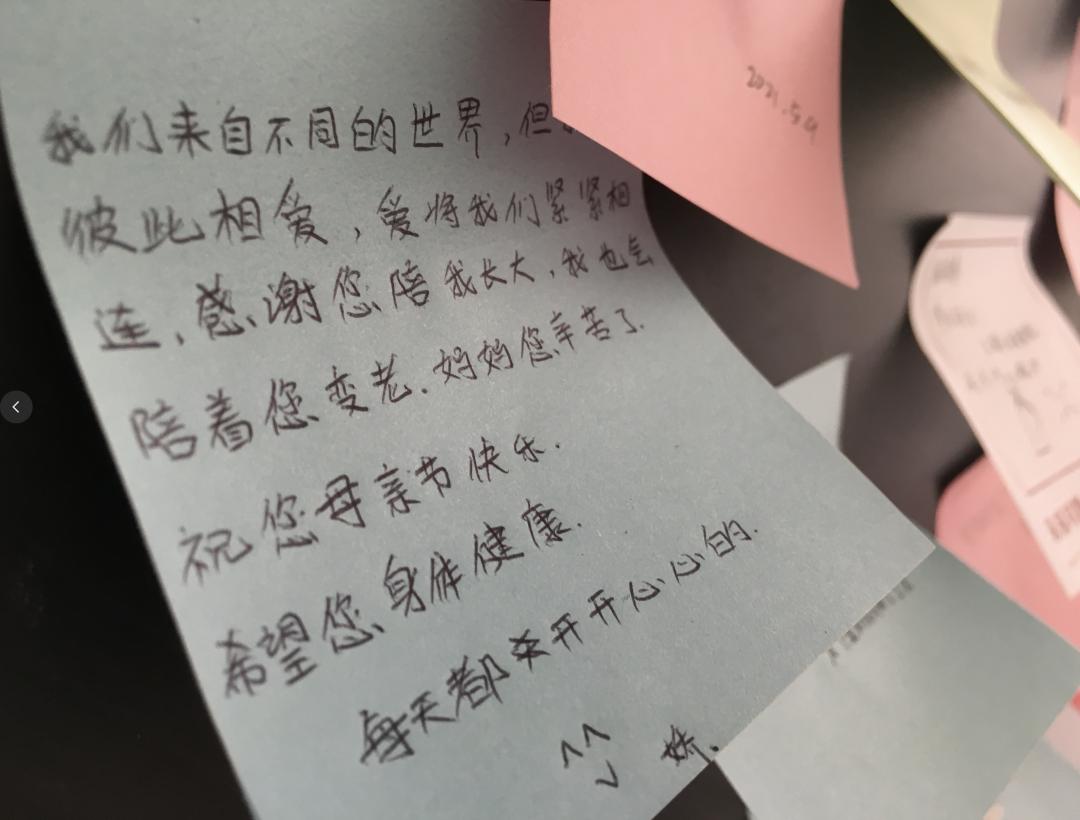 我们来自不同的世界,但
彼此相爱,爱将我们紧紧相
连,感谢您陪我长大,我也会
陪着您变老.妈妈您辛苦了.
祝您母亲节快乐.
希望您身体健康.
每天都来开开心心的.
娇.
2021.5.9